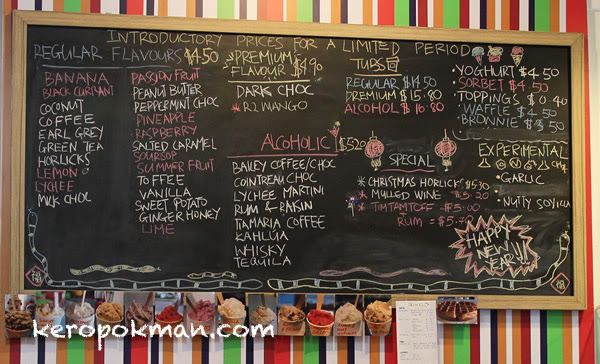 INTRODUCTORY PRICES FOR A LIMITED PERIOD
REGULAR FLAVOURS $4.50
BANANA
BLACK CURRANT
COCONUT
COFFEE
EARL GREY
GREEN TEA
HORLICKS
LEMON
LYCHEE
MILK CHOC
PASSION FRUIT
PEANUT BUTTER
PEPPERMINT CHOC
PINEAPPLE
RASPBERRY
SALTED CARAMEL
SOURSOP
SUMMER FRUIT
TOFFEE
VANILLA
SWEET POTATO
GINGER HONEY
LIME
PREMIUM
FLAVOUR $4.90
DARK CHOC
MANGO
ALCOHOLIC $5.20
BAILEY COFFEE/CHOC
COINTREAU CHOC
LYCHEE MARTINI
RUM & RAISIN
TIAMARIA COFFEE
KAHLUA
WHISKY
TEQUILA
TUBS
REGULAR $14.50
PREMIUM $15.80
ALCOHOL $16.80
SPECIAL
* CHRISTMAS HORLICK $5.30
* MULLED WINE $5.20
* TIMTAMTOFF $5.00
RUM = $5.70
YOGHURT $4.50
SORBET $4.50
TOPPINGS $0.40
WAFFLE $4.50
BROWNIE $5.50
EXPERIMENTAL
GARLIC
NUTTY SOYILLA
HAPPY
NEW
YEAR!!!
keropokman.com